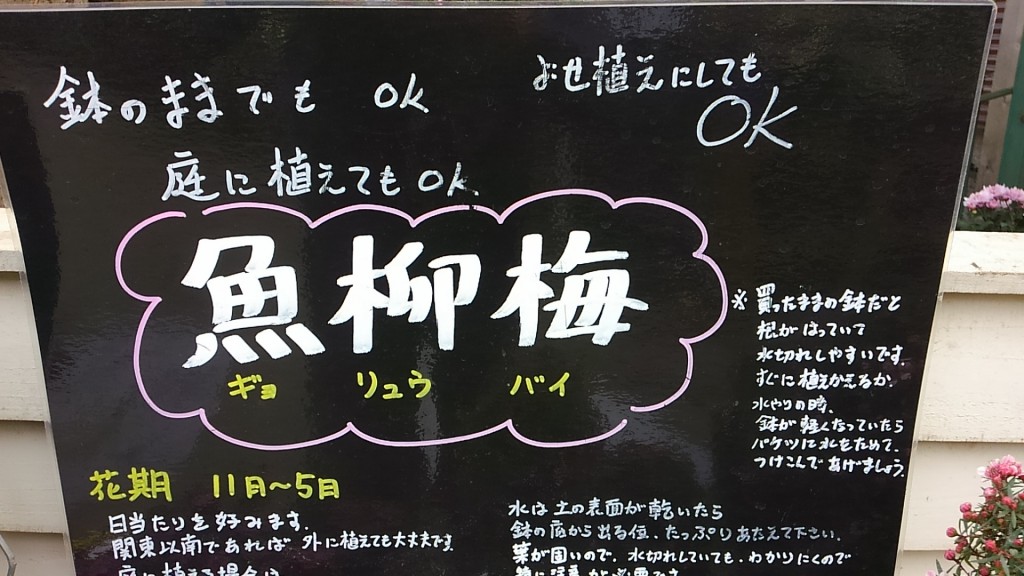 鉢のままでも OK
よせ植えにしても
OK
庭に植えてもOK.
魚柳梅
ギョ リュウ バイ
※買ったままの鉢だと
根がはっていて
水切れしやすいです.
すぐに植えかえるか.
水やりの時、
鉢が軽くなっていたら
バケツに水をためて、
つけこんであげましょう.
花期 11月～5月
日当たりを好みます.
関東以南であれば 外に植えても大丈夫です.
庭に植える場合は
水は土の表面が乾いたら
鉢の底から出る位、たっぷりあたえて下さい.
葉が固いので、水切れしていても、わかりにくので